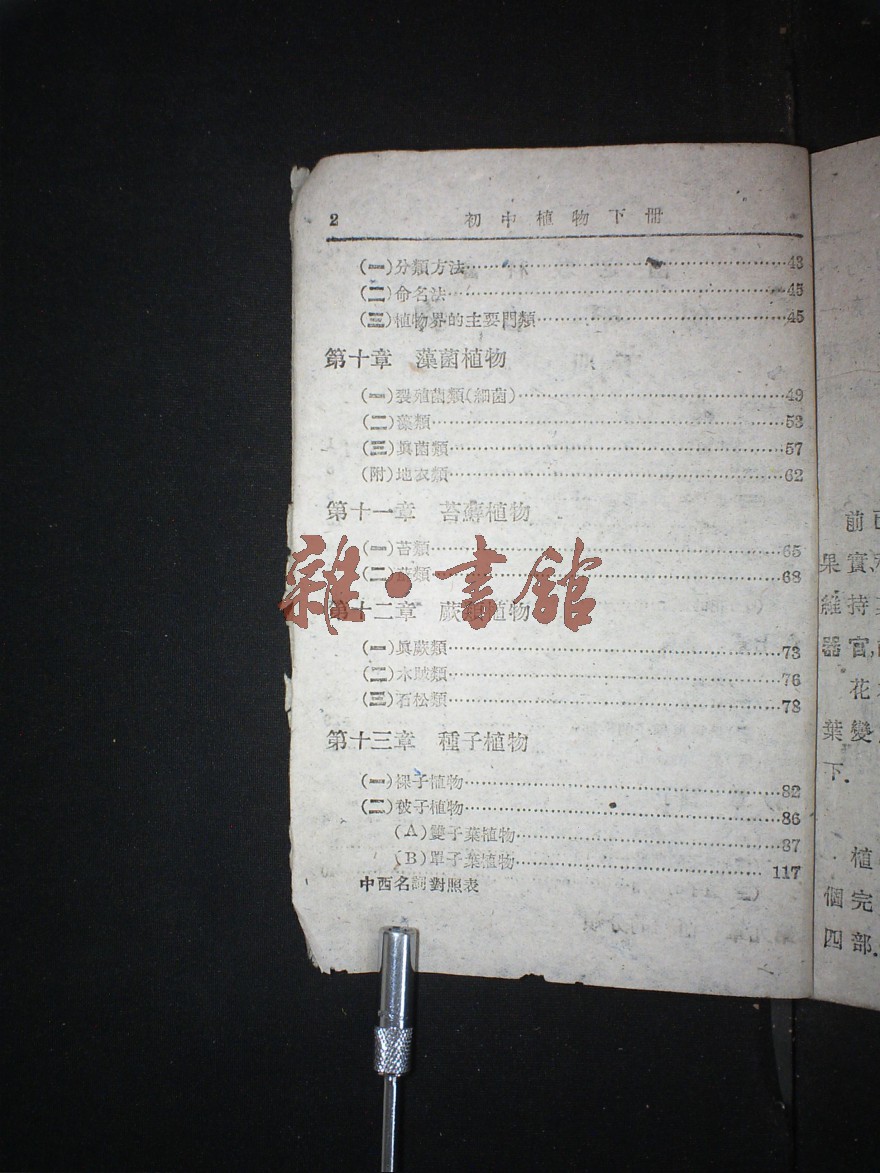 2 初中植物下冊
(一)分類方法……43
(二)命名法……45
(三)植物界的主要門類……45
第十章 藻菌植物
(一)裂殖菌類(細菌)……49
(二)藻類……53
(三)眞菌類……57
(附)地衣類……62
第十一章 苔蘚植物
(一)苔類……65
(二)蘚類……68
雜·書館
第十二章 蕨類植物
(一)眞蕨類……73
(二)木賊類……76
(三)石松類……78
第十三章 種子植物
(一)裸子植物……82
(二)被子植物……86
(A)雙子葉植物……87
(B)單子葉植物……117
中西名詞對照表
前
果實
維持
器官,
花
葉變
下.
植
個完
四部.